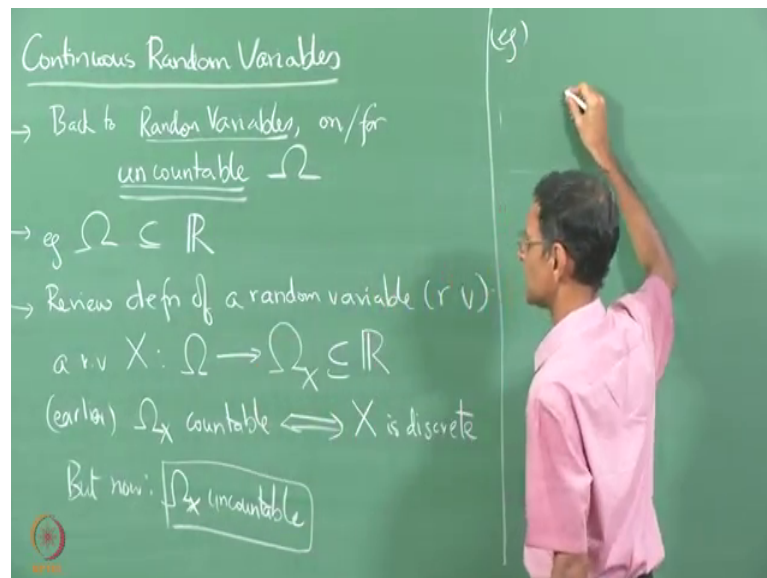 Continuous Random Variables
→ Back to Random Variables, on/for
uncountable Ω
→ eg Ω ⊆ ℝ
→ Review defn of a random variable (r v)
a r.v X : Ω → Ω_X ⊆ ℝ
(earlier) Ω_X countable ⟺ X is discrete
But now: Ω_X uncountable
(eg)
NPTEL